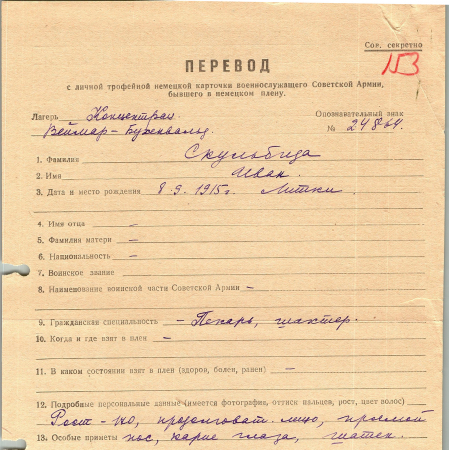 Сов. секретно
153
ПЕРЕВОД
с личной трофейной немецкой карточки военнослужащего Советской Армии,
бывшего в немецком плену.
Лагерь Концентрац.
Опознавательный знак
Веймар-Бухенвальд.
№ 24864.
1. Фамилия Скульбида
2. Имя Иван.
3. Дата и место рождения 8.9.1915г. Литки.
4. Имя отца —
5. Фамилия матери —
6. Национальность —
7. Воинское звание —
8. Наименование воинской части Советской Армии —
9. Гражданская специальность — Пекарь, шахтер.
10. Когда и где взят в плен —
11. В каком состоянии взят в плен (здоров, болен, ранен) —
12. Подробные персональные данные (имеется фотография, оттиск пальцев, рост, цвет волос)
Рост - 170, продолговат. лицо, прямой
13. Особые приметы нос, карие глаза, шатен.